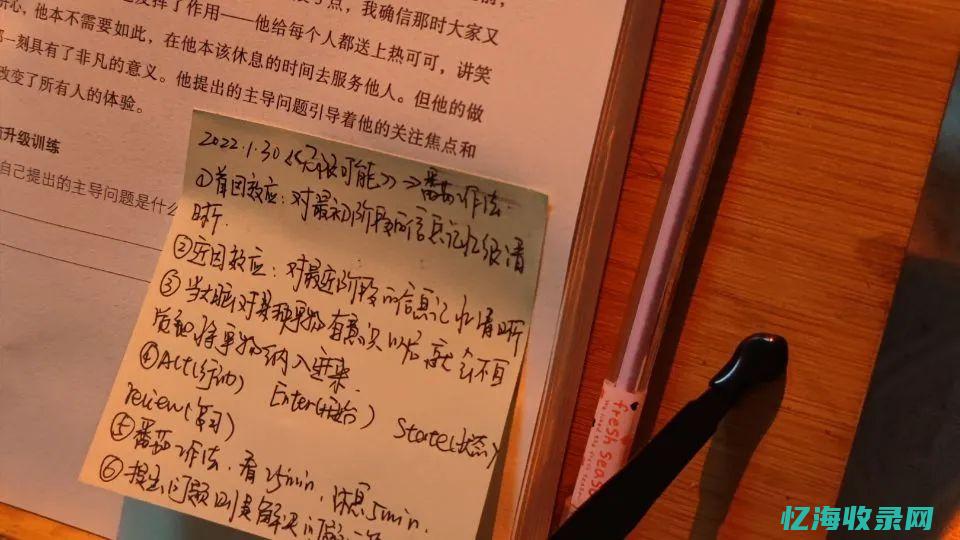 发挥了作用——他给每个人都送上热可可，讲笑
心，他本不需要如此，在他本该休息的时间去服务他人。但他的做
一刻具有了非凡的意义。他提出的主导问题引导着他的关注焦点和
改变了所有人的体验。
升级训练
自己提出的主导问题是什么
了点，我确信那时大家又
2022.1.30《无限可能》→番茄工作法
①首因效应：对最初阶段的信息记忆很清
晰.
②近因效应：对最近阶段的信息记忆清晰
③当大脑对某种事物有意识以后就会不自
将事物纳入进来.
④Act(行动) Enter(开始) State(状态)
review(复习)
⑤番茄工作法，看25min，休息5min.
⑥提出问题则是解决问题的
fresh seaso
忆海收录网